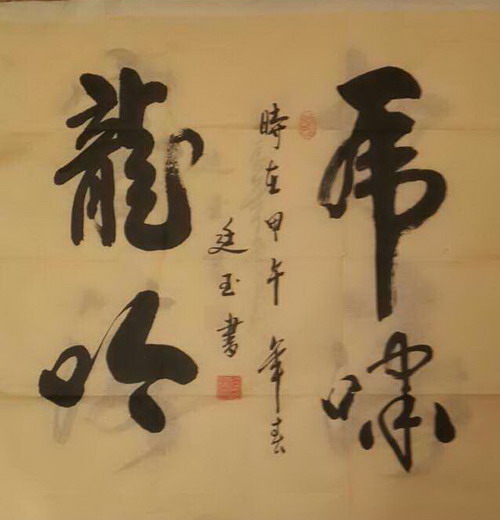 虎啸
時在甲午年春
廷玉書
龍吟